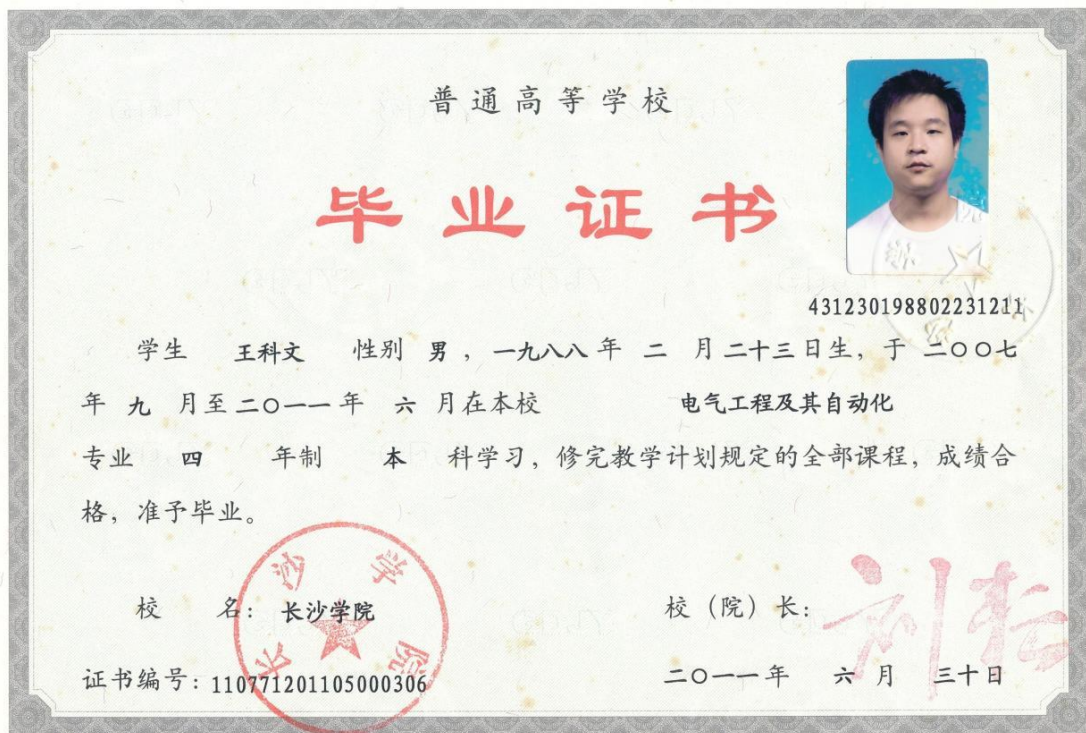 普通高等学校
毕业证书
431230198802231211
学生 王科文 性别 男 ，一九八八 年 二 月 二十三 日生，于 二〇〇七
年 九 月至 二〇一一 年 六 月在本校 电气工程及其自动化
专业 四 年制 本 科学习，修完教学计划规定的全部课程，成绩合
格，准予毕业。
校 名：长沙学院
校（院）长：
长沙学院
证书编号：110771201105000306
二〇一一 年 六 月 三十 日